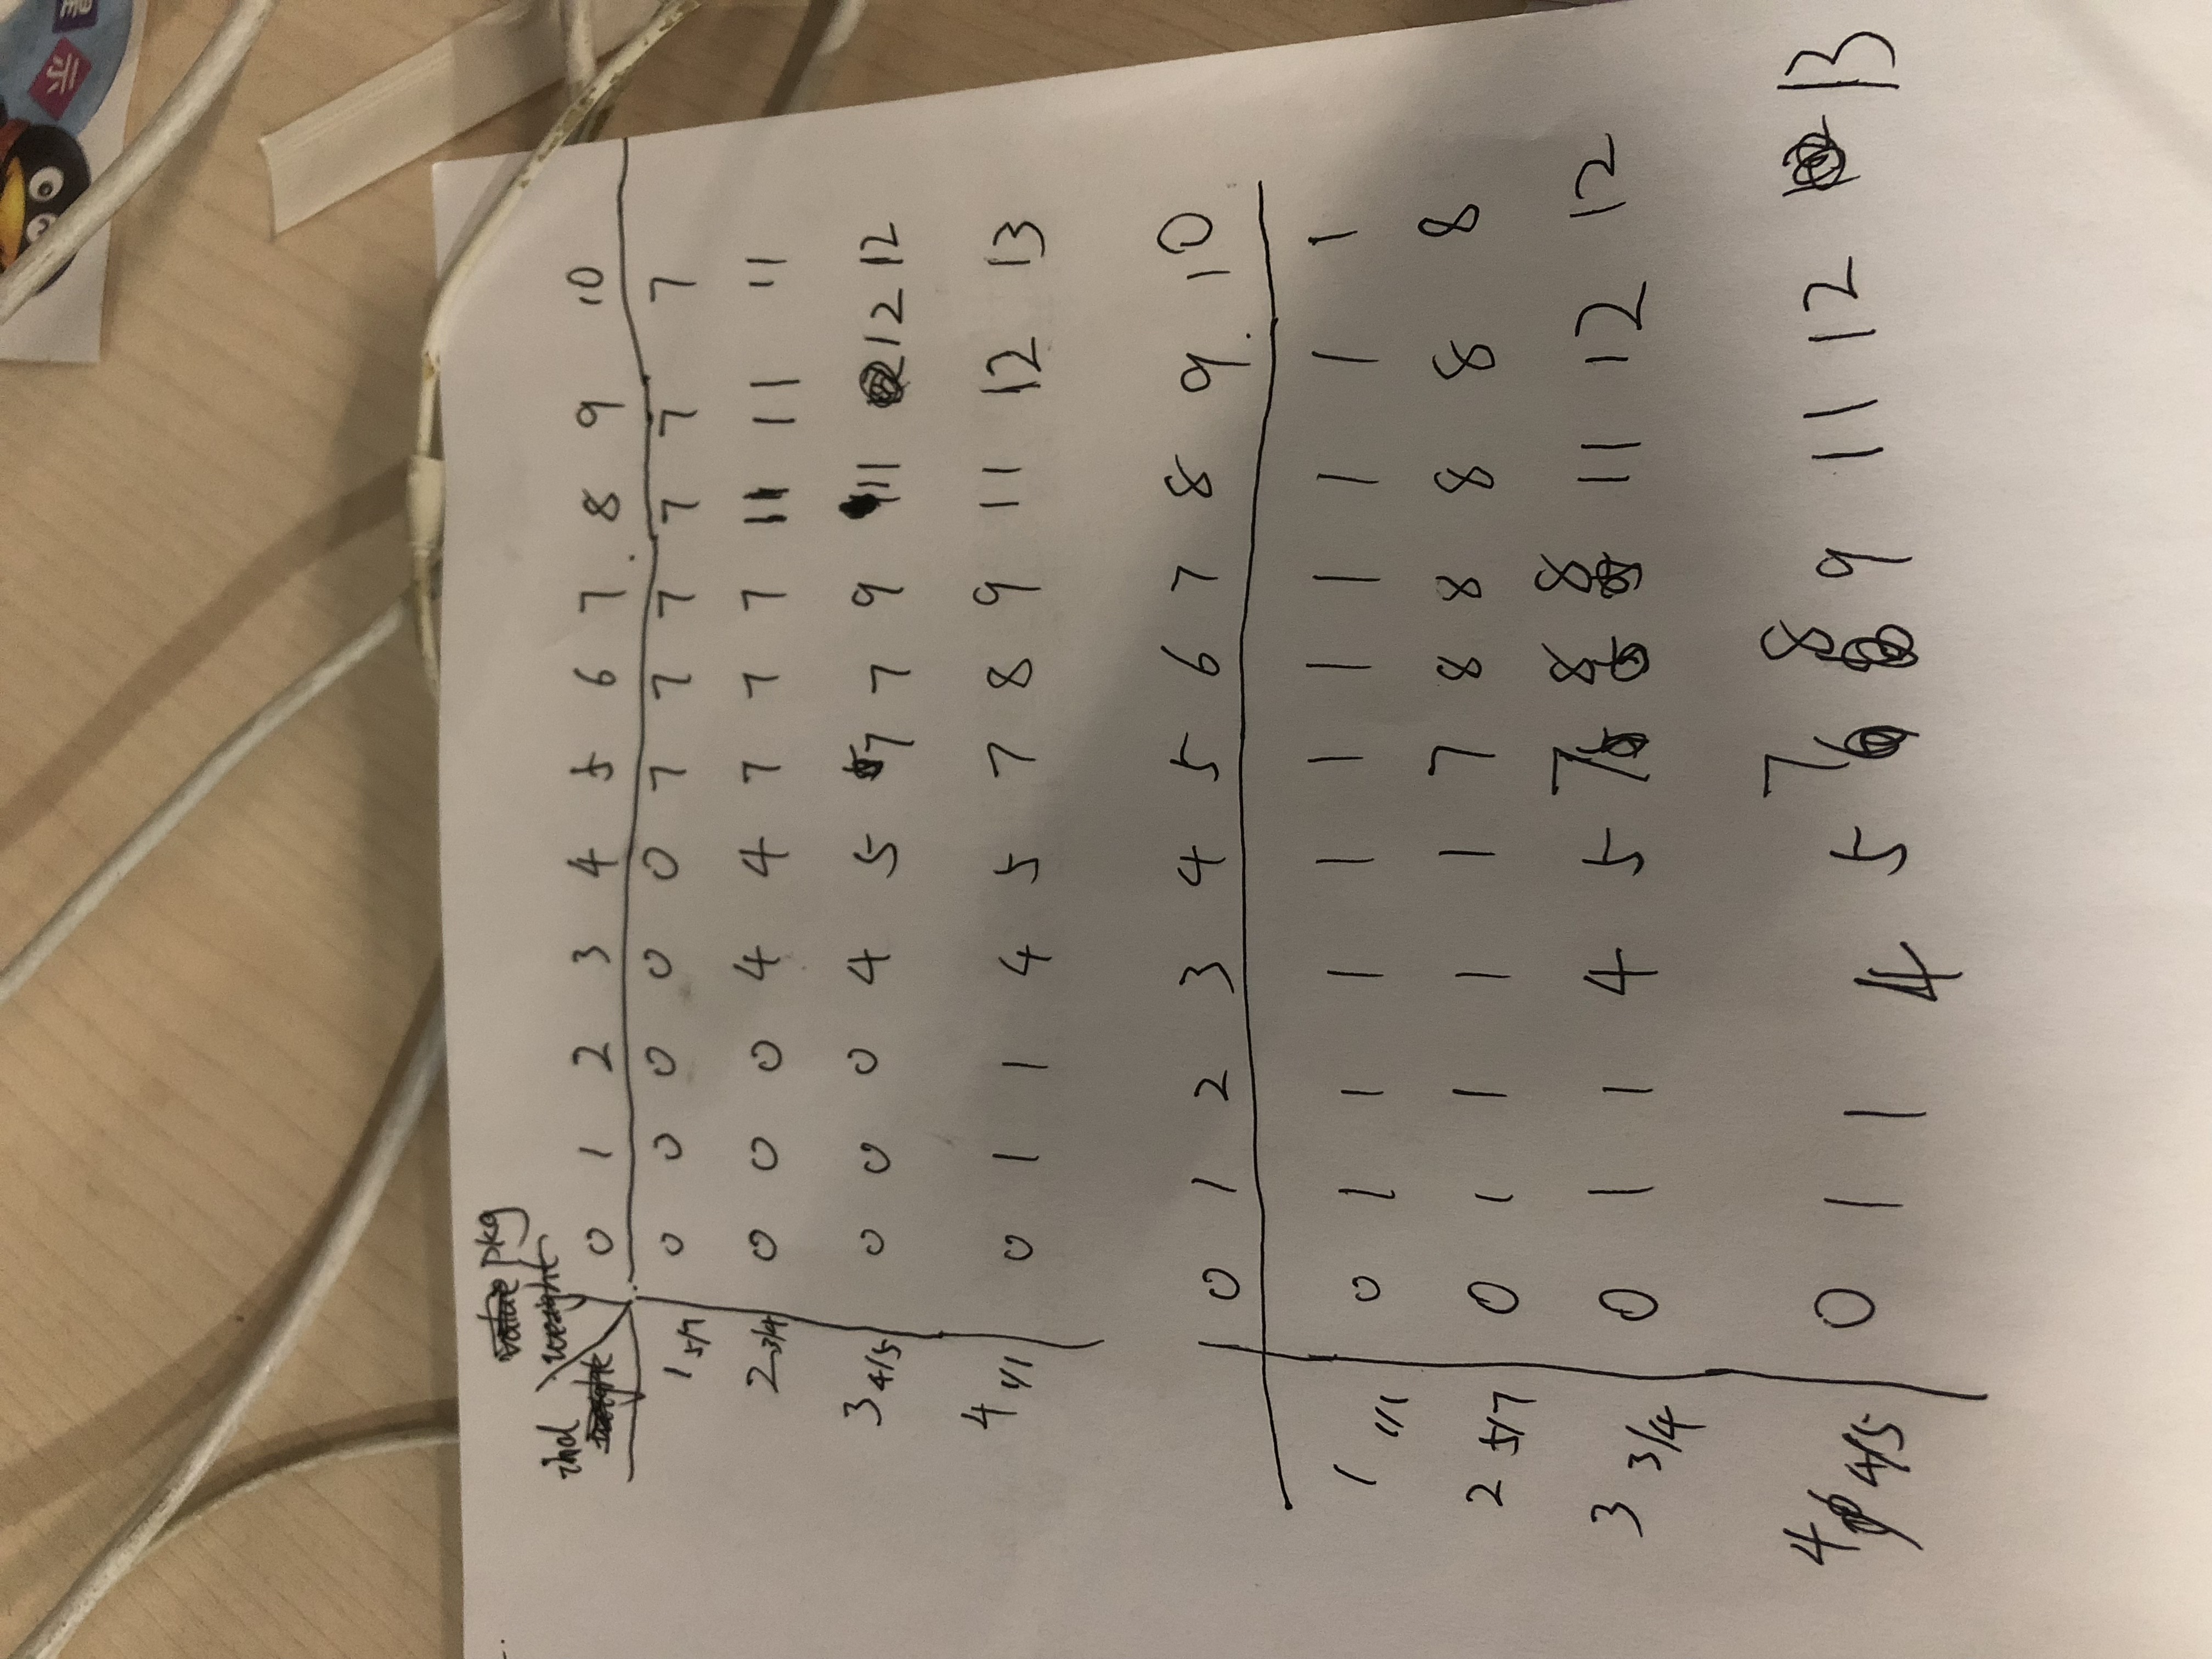 pkg
ind
0 1 2 3 4 5 6 7 8 9 10
1 5/7 0 0 0 0 0 7 7 7 7 7 7
2 3/4 0 0 0 4 4 7 7 7 11 11 11
3 4/5 0 0 0 4 5 7 7 9 11 12 12
4 1/1 0 1 1 4 5 7 8 9 11 12 13
0 1 2 3 4 5 6 7 8 9 10
1 1/1 0 1 1 1 1 1 1 1 1 1 1
2 5/7 0 1 1 1 1 7 8 8 8 8 8
3 3/4 0 1 1 4 5 7 8 8 11 12 12
4 4/5 0 1 1 4 5 7 8 9 11 12 13